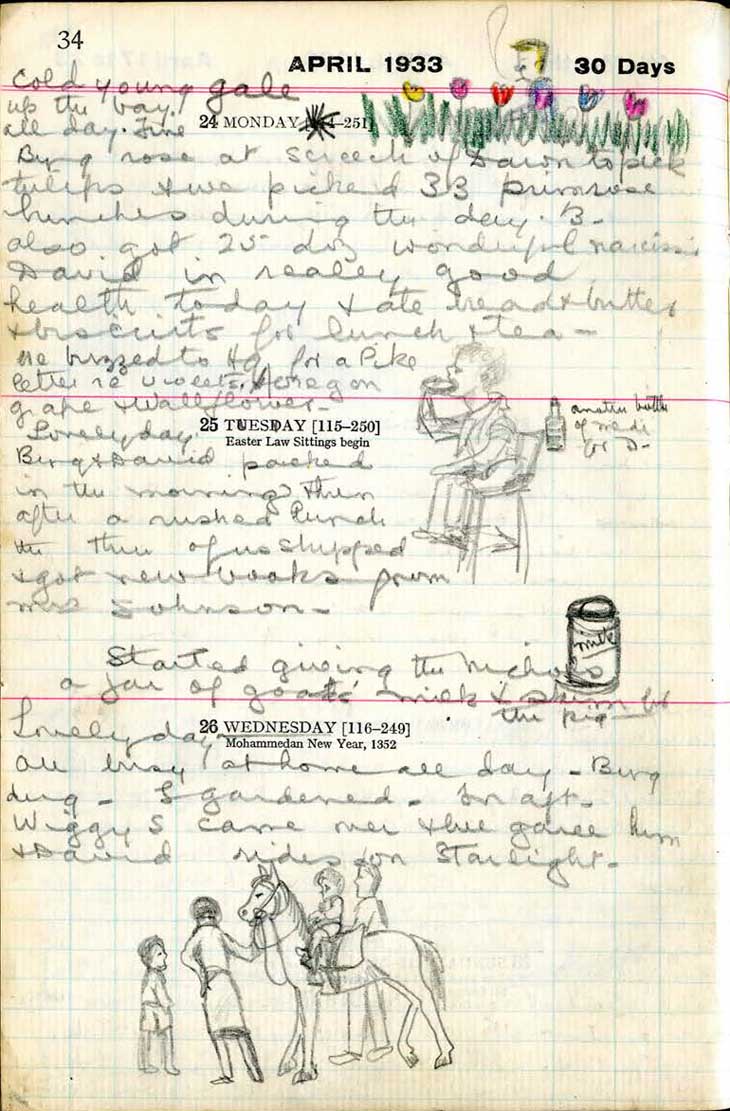 34
APRIL 1933
30 Days
Cold young gale
up the bay.
all day. Fine
24 MONDAY [114–251]
Byng rose at screech of Dawn to pick
tulips & we picked 33 primrose
bunches during the day. B-
also got 25 doz wonderful narcissi
David in realey good
health today & ate bread & butter
& biscuits for lunch & tea –
He buzzed to Hg for a Pike
letter re violets, Oregon
grape & Wallflower –
25 TUESDAY [115–250]
Easter Law Sittings begin
another bottle
of medi
for D-
Lovely day.
Byng & David packed
in the morning & then
after a rushed lunch
the three of us shipped
& got new books from
Mrs Johnson –
milk
Started giving the Nichols
a jar of goats' milk & skim for
the pig –
26 WEDNESDAY [116–249]
Mohammedan New Year, 1352
Lovely day
all busy at home all day – Byng
dug – I gardened – In aft.
Wiggy S came over & we gave him
& David rides on Starlight –